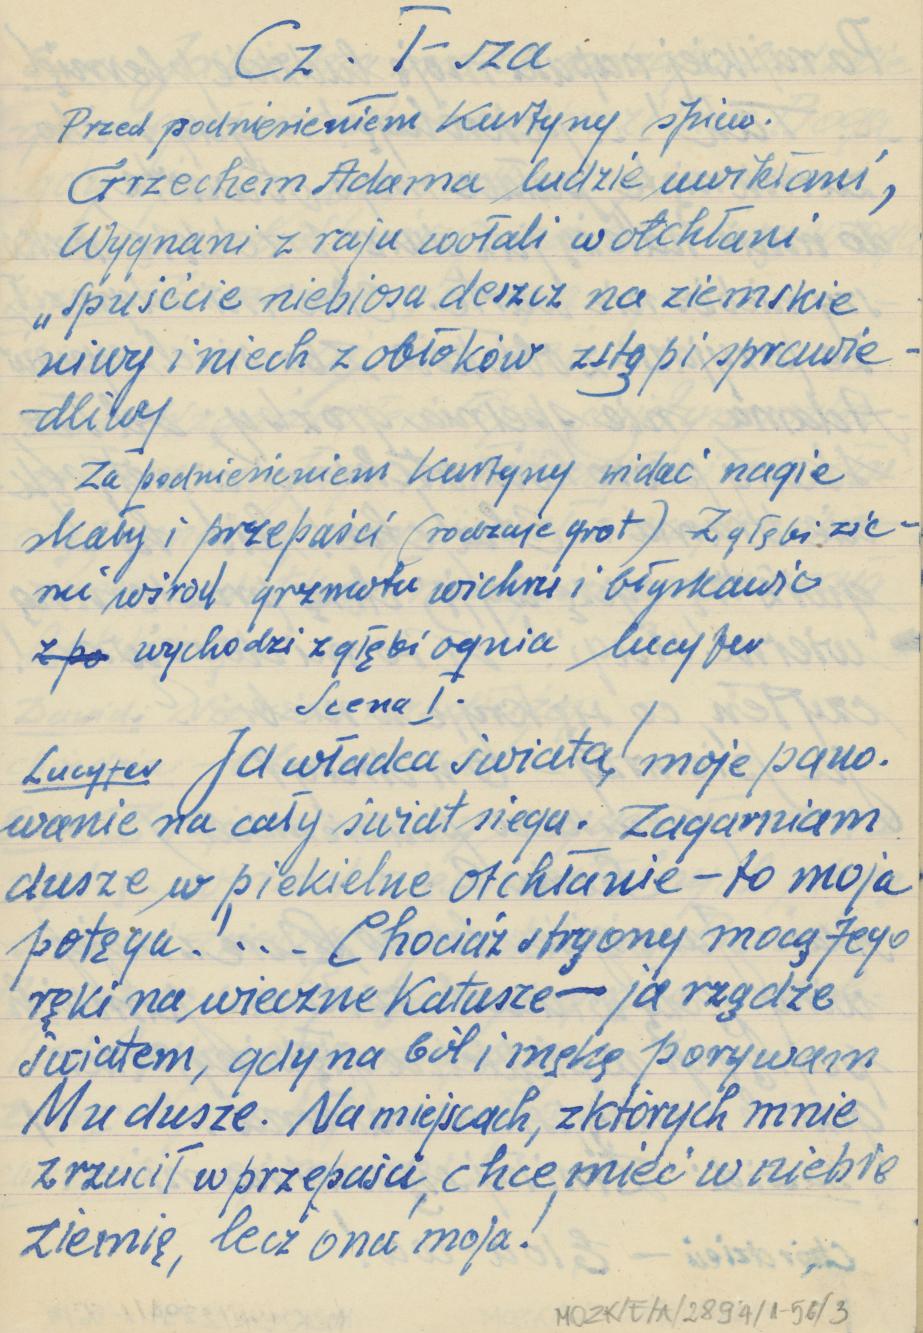 Cz. I-sza
Przed podniesieniem Kurtyny śpiew.
Grzechem Adama ludzie uwikłani,
Wygnani z raju wołali w otchłani
„Spuśćcie niebiosa deszcz na ziemskie
niwy i niech z obłoków zstąpi sprawie-
dliwy
Za podniesieniem Kurtyny widać nagie
skały i przepaści (rodzaje grot) Z głębi zie-
mi wśród grzmotu wichru i błyskawic
z po wychodzi z głębi ognia Lucyfer
Scena I.
Lucyfer Ja władca świata, moje pano.
wanie na cały świat sięga. Zagarniam
dusze w piekielne otchłanie – to moja
potęga!... Chociaż strącony mocą Jego
ręki na wieczne Katusze – ja rządzę
światem, gdy na ból i mękę porywam
Mu dusze. Na miejscach, z których mnie
zrzucił w przepaści, chce mieć w niebie
ziemię, lecz ona moja!
MOZK/E/A/2894/1-56/3